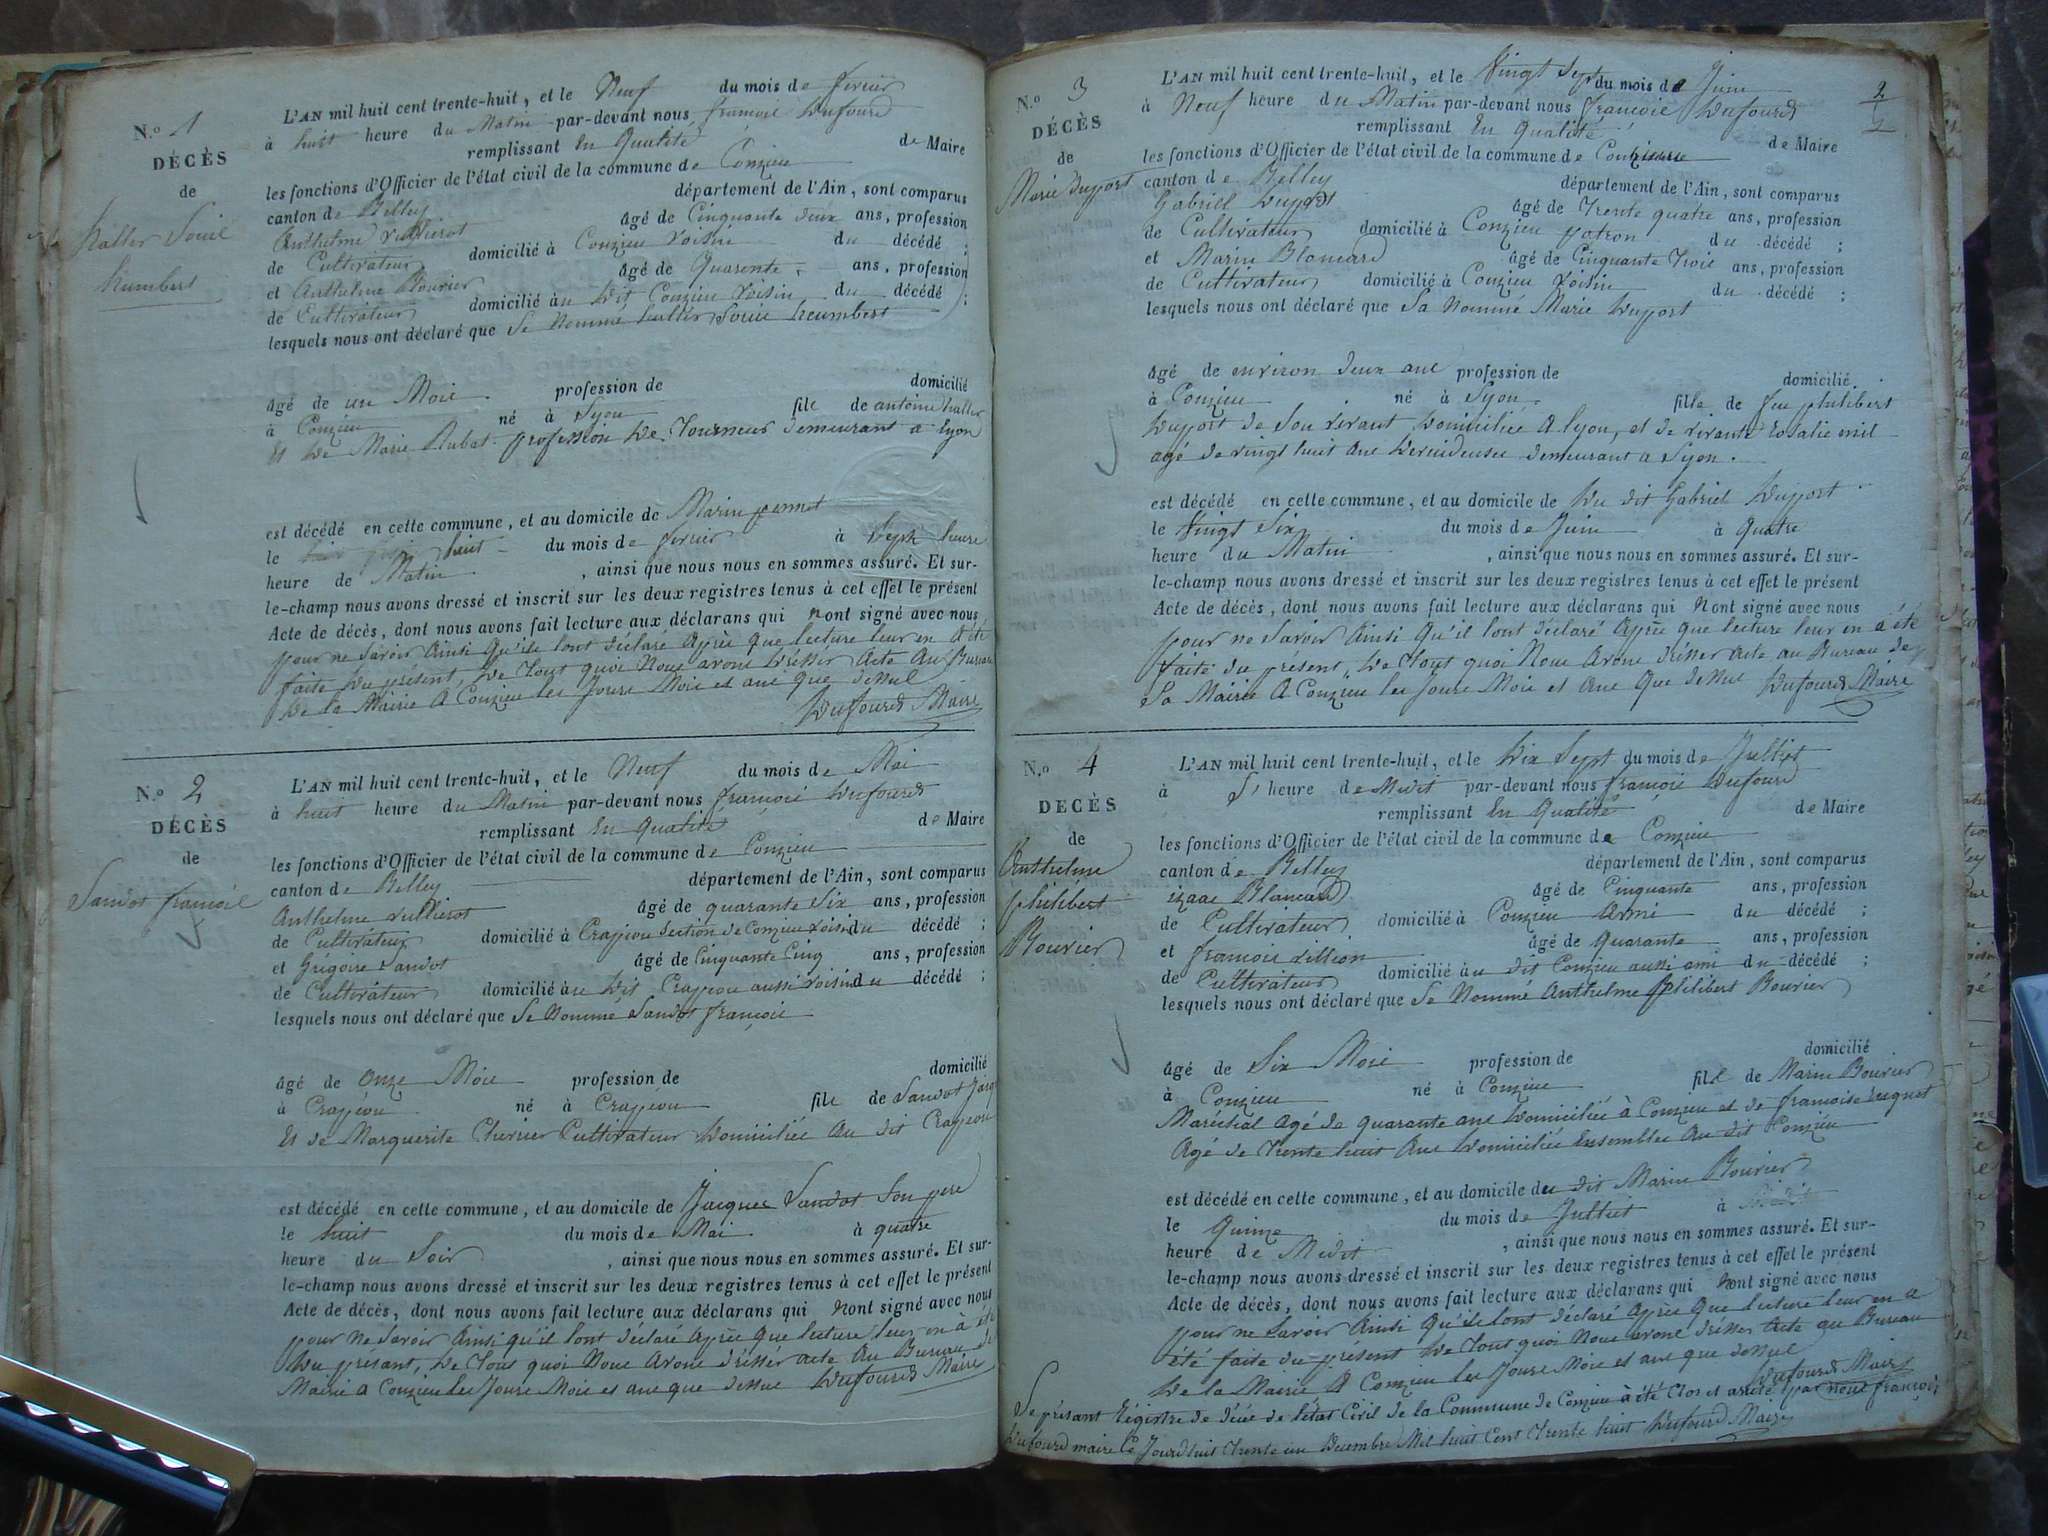 N.o 1
DÉCÈS
de
haller Louis
humbert
L'AN mil huit cent trente-huit, et le Neuf du mois de fevrier
à huit heure du Matin par-devant nous françois Dufourd
remplissant En Qualité de Maire
les fonctions d'Officier de l'état civil de la commune de Conzieu
canton de Belley département de l'Ain, sont comparus
Anthelme Vullierot âgé de Cinquante deux ans, profession
de Cultivateur domicilié à Conzieu Voisin du décédé ;
et Anthelme Bouvier âgé de Quarente ans, profession
de Cultivateur domicilié àu dit Conzieu Voisin du décédé ;
lesquels nous ont déclaré que Le Nommé haller Louis humbert
âgé de un Mois profession de domicilié
à Conzieu né à Lyon fils de antoine haller
Et de Marie Aubat profession De Tourneur demeurant a Lyon
est décédé en cette commune, et au domicile de Marin pernet
le huit du mois de fevrier à Sept heure
heure de Matin , ainsi que nous nous en sommes assuré. Et sur-
le-champ nous avons dressé et inscrit sur les deux registres tenus à cet effet le présent
Acte de décès, dont nous avons fait lecture aux déclarans qui n'ont signé avec nous
pour ne Savoir Ainsi Qu'ils lont déclaré Après Que lecture leur en a été
faite Du présent, De Tout quoi Nous avons Dressér Acte Au Bureau
De la Mairie A Conzieu les Jours Mois et ans Que dessus
Dufourd Maire
N.o 2
DÉCÈS
de
Sandot françois
L'AN mil huit cent trente-huit, et le Neuf du mois de Mai
à huit heure du Matin par-devant nous françois Dufourd
remplissant En Qualité de Maire
les fonctions d'Officier de l'état civil de la commune de Conzieu
canton de Belley département de l'Ain, sont comparus
Anthelme Vullierot âgé de quarante Six ans, profession
de Cultivateur domicilié à Crapeou Section de Conzieu Voisin du décédé ;
et Grégoire Sandot âgé de Cinquante Cinq ans, profession
de Cultivateur domicilié àu Dit Crapeou aussi Voisin du décédé ;
lesquels nous ont déclaré que Le Nomme Sandot françois
âgé de Onze Mois profession de domicilié
à Crapéou né à Crapéou fils de Sandot
Et de Marguerite Cultivateur Domiciliée Au dit Crapeou
est décédé en cette commune, et au domicile de Jacques Sandot Son pere
le huit du mois de Mai à quatre
heure du Soir , ainsi que nous nous en sommes assuré. Et sur-
le-champ nous avons dressé et inscrit sur les deux registres tenus à cet effet le présent
Acte de décès, dont nous avons fait lecture aux déclarans qui n'ont signé avec nous
pour Ne Savoir Ainsi qu'il lont déclaré Après Que lecture leur en à été
Du présant, De Tout quoi Nous Avons dréssér acte Au Bureau de
Mairie a Conzieu les Jours Mois et ans que dessus Dufourd Maire
3
N.o 3
DÉCÈS
de
Marie Dupport
L'AN mil huit cent trente-huit, et le Vingt Sept du mois de Juin
à Neuf heure du Matin par-devant nous françois Dufourd
remplissant En Qualité de Maire
les fonctions d'Officier de l'état civil de la commune de Conzieu
canton de Belley département de l'Ain, sont comparus
Gabriel Dupport âgé de Trente quatre ans, profession
de Cultivateur domicilié à Conzieu patron du décédé ;
et Marin Blancard âgé de Cinquante Trois ans, profession
de Cultivateur domicilié à Conzieu Voisin du décédé ;
lesquels nous ont déclaré que La Nommé Marie Dupport
âgé de environ deux ans profession de domicilié
à Conzieu né à Lyon fille de feu philibert
Dupport de Son Vivant Domiciliée A lyon, et de vivante Rosalie
agé de vingt huit ans Dévideuse demeurant a Lyon.
est décédé en cette commune, et au domicile de Du dit Gabriel Dupport
le Vingt Six du mois de Juin à Quatre
heure du Matin , ainsi que nous nous en sommes assuré. Et sur-
le-champ nous avons dressé et inscrit sur les deux registres tenus à cet effet le présent
Acte de décès, dont nous avons fait lecture aux déclarans qui N'ont signé avec nous
pour ne Savoir Ainsi Qu'il lont déclaré Après Que lecture leur en a été
faite du présent, De Tout quoi Nous Avons drésser Acte au Bureau De
La Mairie A Conzieu les Jours Mois et Ans Que dessus Dufourd Maire
N.o 4
DÉCÈS
de
Anthelme
philibert
Bouvier
L'AN mil huit cent trente-huit, et le Dix Sept du mois de Julliet
à heure de Midit par-devant nous françois Dufourd
remplissant En Qualité de Maire
les fonctions d'Officier de l'état civil de la commune de Conzieu
canton de Belley département de l'Ain, sont comparus
izaac Blancard âgé de Cinquante ans, profession
de Cultivateur domicilié à Conzieu Ami du décédé ;
et francois Vullion âgé de Quarante ans, profession
de Cultivateur domicilié àu dit Conzieu aussi ami du décédé ;
lesquels nous ont déclaré que Le Nommé Anthelme Philibert Bouvier
âgé de Six Mois profession de domicilié
à Conzieu né à Conzieu fils de Marin Bouvier
Maréchal Agé de quarante ans Domiciliée à Conzieu et de francoise
Agé de Trente huit Ans Domiciliée Ensembles Au dit Conzieu
est décédé en cette commune, et au domicile du dit Marin Bouvier
le Quinze du mois de Julliet à
heure de Midit , ainsi que nous nous en sommes assuré. Et sur-
le-champ nous avons dressé et inscrit sur les deux registres tenus à cet effet le présent
Acte de décès, dont nous avons fait lecture aux déclarans qui N'ont signé avec nous
pour ne Savoir Ainsi Qu'ils lont déclaré Après Que lecture leur en a
été faite du présent De Tout quoi Nous avons drésser Acte au Bureau
De la Mairie A Conzieu les Jours Mois et ans que dessus
Dufourd Maire
Le présant Régistre de décès de l'état Civil de la Commune de Conzieu à été Clos et arrété par nous françois
Dufourd maire Ce Jourdhuit Trente un Decembre Mil huit Cent Trente huit Dufourd Maire